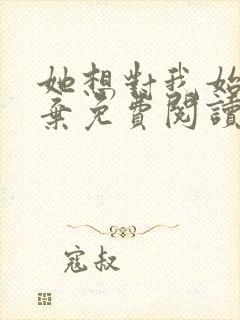 她想對我始
棄免費閱讀
寇叔